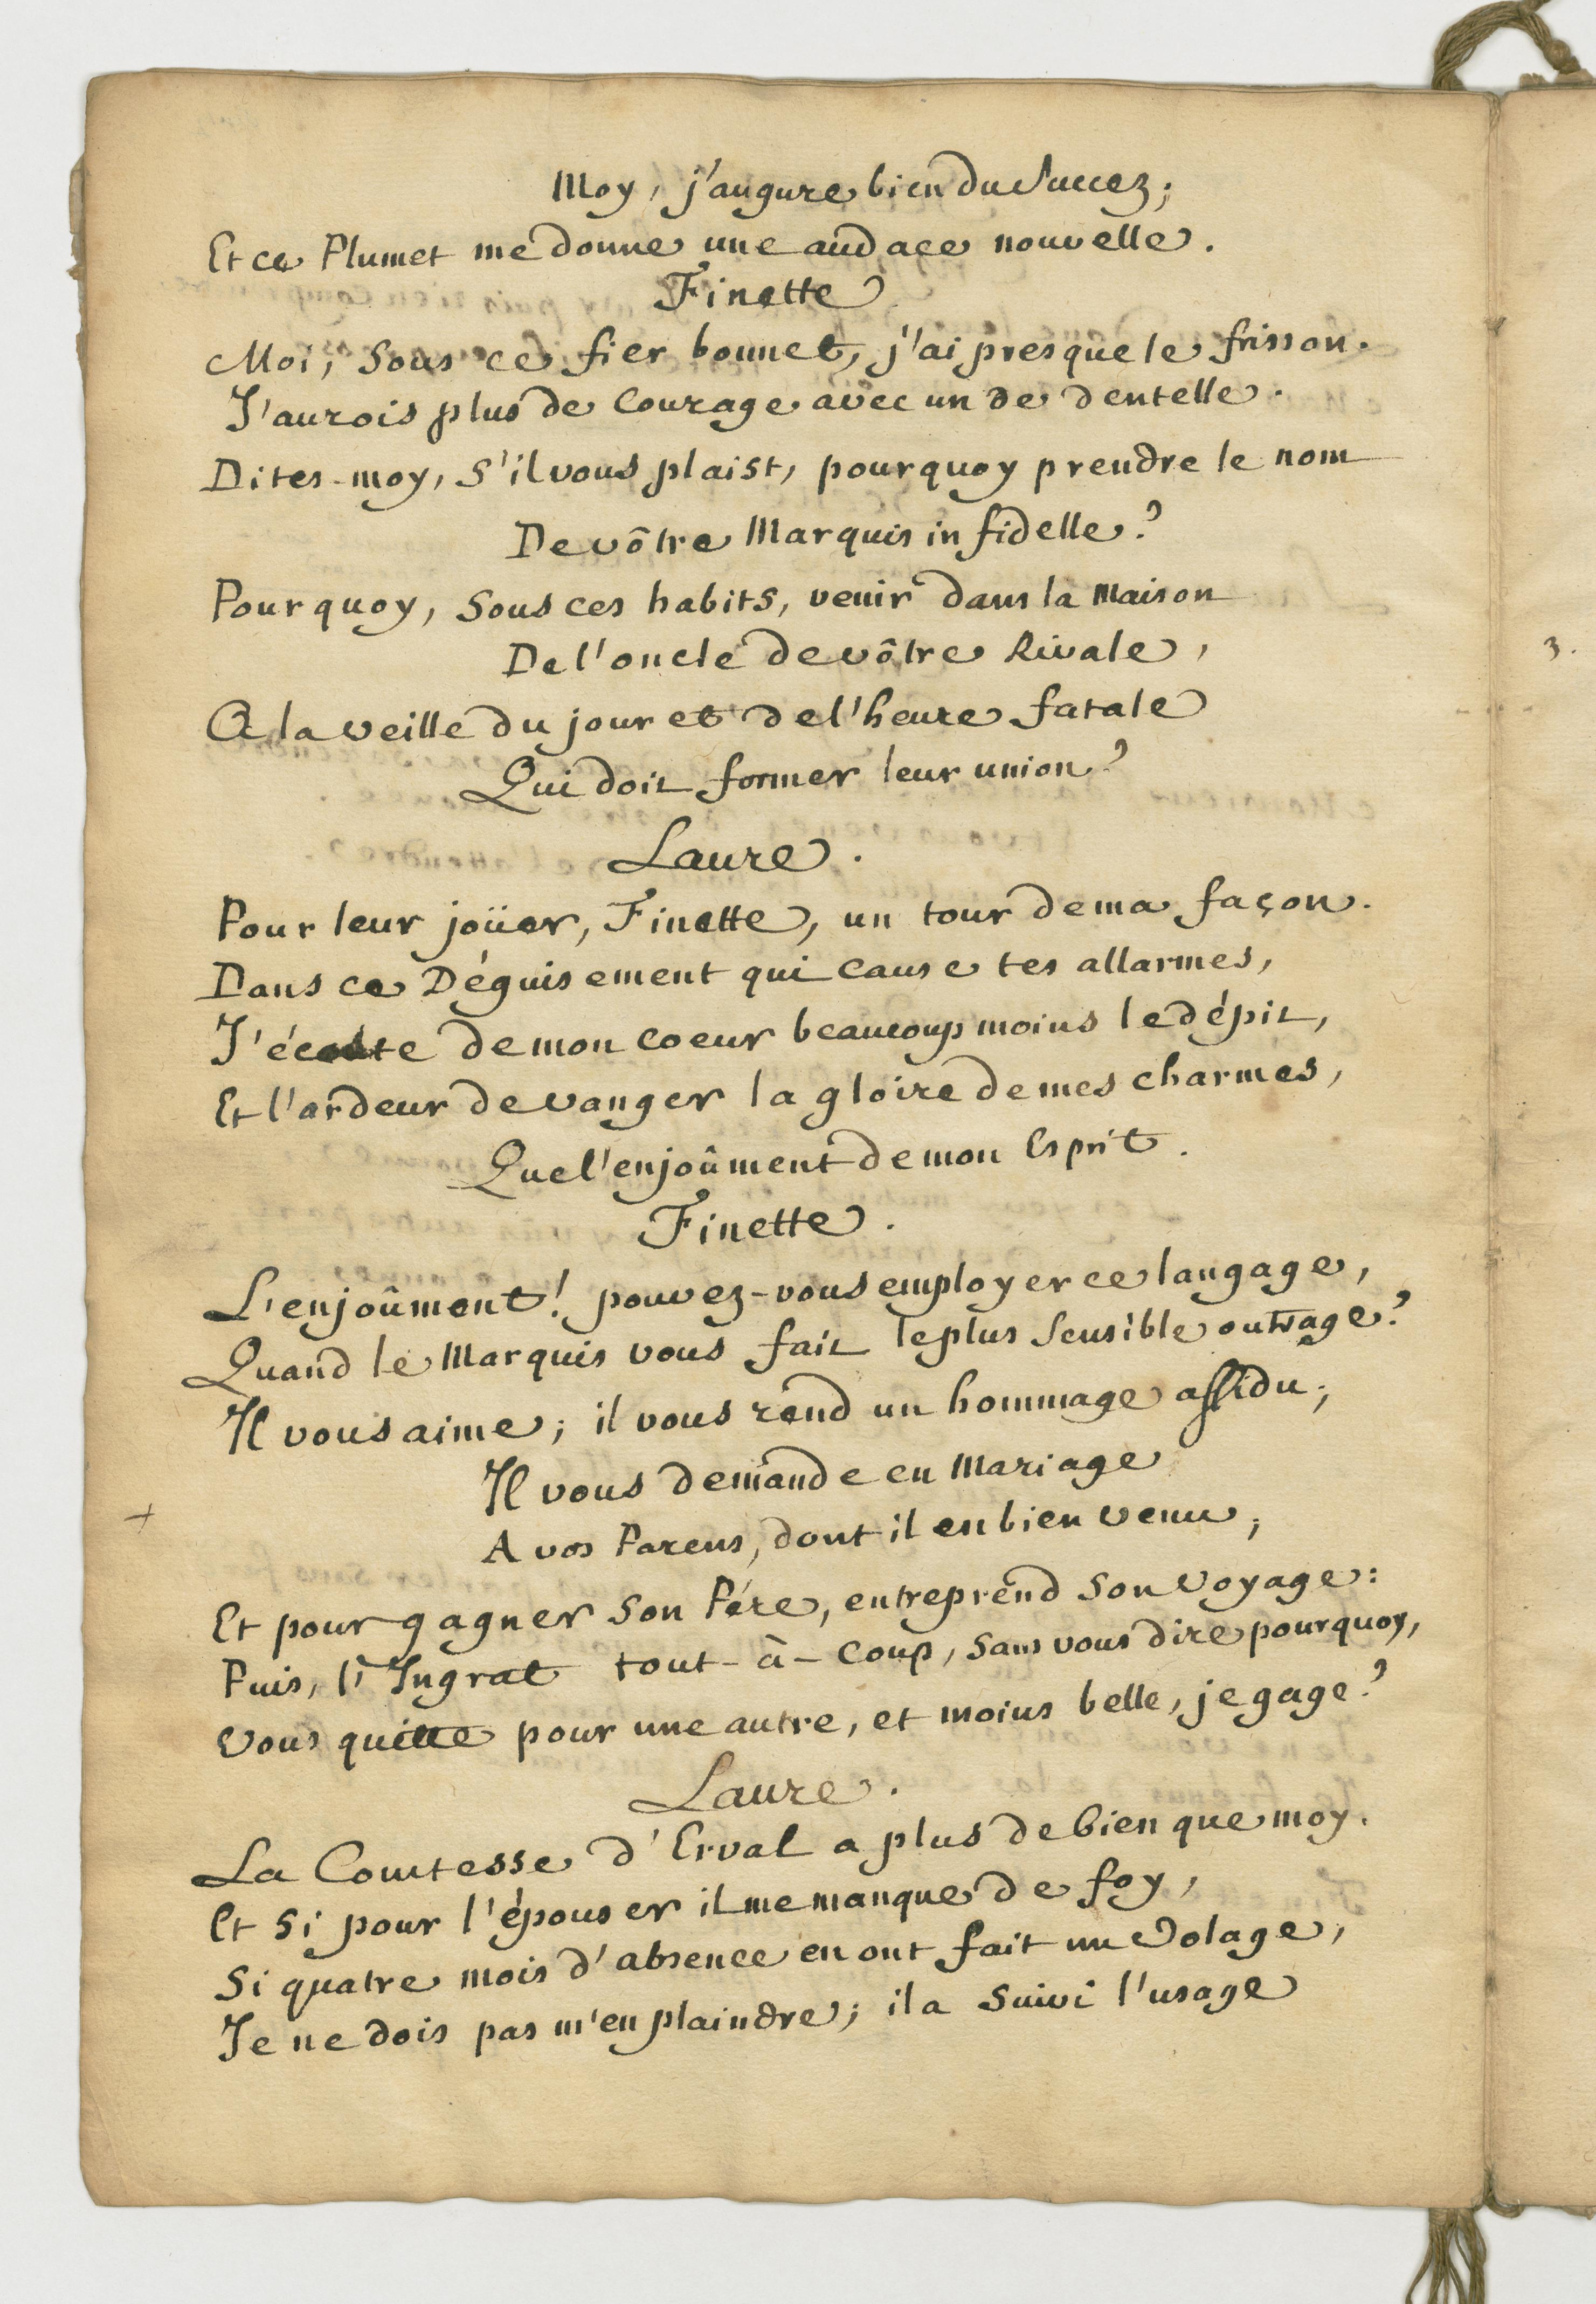 Moy, j'augure bien du Succez;
Et ce Plumet me donne une audace nouvelle.
Finette
Moi, Sous ce fier bonnet, j'ai presque le frisson.
J'aurois plus de Courage avec un de dentelle.
Dites-moy, S'il vous plaist, pourquoy prendre le nom
De vôtre Marquis infidelle?
Pourquoy, Sous ces habits, venir dans la Maison
De l'oncle de vôtre Rivale,
A la veille du jour et de l'heure fatale
Qui doit former leur union?
Laure.
Pour leur joüer, Finette, un tour de ma façon.
Dans ce Déguisement qui Cause tes allarmes,
J'écoute de mon coeur beaucoup moins le dépit,
Et l'ardeur de vanger la gloire de mes charmes,
Que l'enjoûment de mon Esprit.
Finette.
L'enjoûment! pouvez-vous employer ce langage,
Quand le Marquis vous fait le plus Sensible outrage?
Il vous aime; il vous rend un hommage assidu;
Il vous demande en Mariage
+
A vos Parens, dont il en bien venu;
Et pour gagner Son Pére, entreprend Son Voyage:
Puis, l'Ingrat tout-à-Coup, Sans vous dire pourquoy,
Vous quitte pour une autre, et moins belle, je gage?
Laure.
La Comtesse d'Erval a plus de bien que moy.
Et Si pour l'épouser il me manque de foy,
Si quatre mois d'absence en ont fait un Volage,
Je ne dois pas m'en plaindre; il a Suivi l'usage
3.